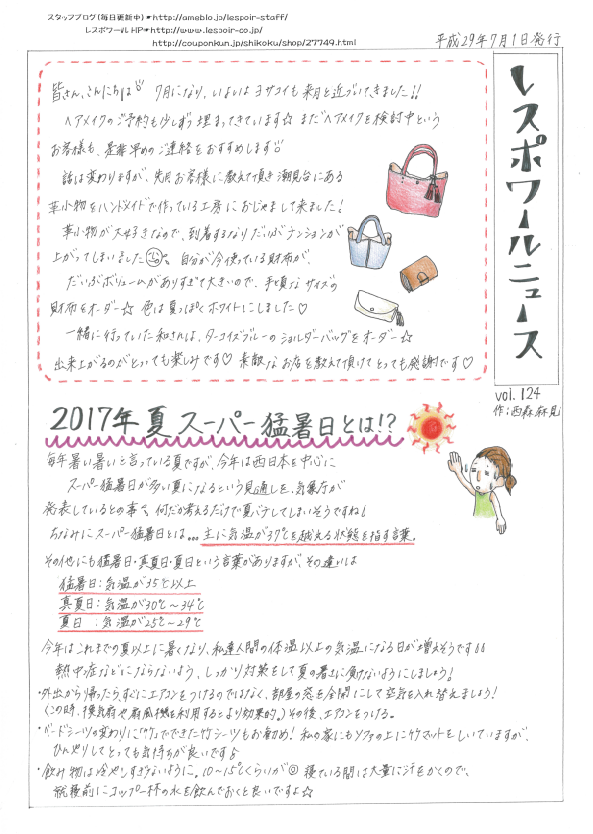 スタッフブログ(毎日更新中)☛http://ameblo.jp/lespoir-staff/
レスポワールHP☛http://www.lespoir-co.jp/
http://couponkun.jp/shikoku/shop/27749.html
平成29年7月1日発行
レスポワールニュース
vol.124
作:西森麻見
皆さん、こんにちは 7月になり、いよいよヨサコイも来月と近づいてきました!!
ヘアメイクのご予約も少しずつ埋まってきています☆ まだヘアメイクを検討中という
お客様も、是非早めのご連絡をおすすめします
話は変わりますが、先日お客様に教えて頂き潮見台にある
革小物をハンドメイドで作っている工房におじゃまして来ました!
革小物が大好きなので、到着するなりだいぶテンションが
上がってしまいました 自分が今使っている財布が、
だいぶボリュームがありすぎて大きいので、手頃なサイズの
財布をオーダー☆ 色は夏っぽくホワイトにしました♡
一緒に行っていた和さんは、ターコイズブルーのショルダーバッグをオーダー☆
出来上がるのがとっても楽しみです♡ 素敵なお店を教えて頂けてとっても感謝です♡
2017年夏 スーパー猛暑日とは!?
毎年暑い暑いと言っている夏ですが、今年は西日本を中心に
スーパー猛暑日が多い夏になるという見通しを、気象庁が
発表しているとの事で、何だか考えるだけで夏バテしてしまいそうですね!
ちなみにスーパー猛暑日とは… 主に気温が37℃を越える状態を指す言葉。
その他にも猛暑日・真夏日・夏日という言葉がありますが、その違いは
猛暑日:気温が35℃以上
真夏日:気温が30℃~34℃
夏日 :気温が25℃~29℃
今年はこれまでの夏以上に暑くなり、私達人間の体温以上の気温になる日が増えそうです
熱中症などにならないよう、しっかり対策をして夏の暑さに負けないようにしましょう!
・外出から帰ったらすぐにエアコンをつけるのではなく、部屋の窓を全開にして空気を入れ替えましょう!
(この時、換気扇や扇風機を利用するとより効果的。)その後、エアコンをつける。
・ベッドシーツの変わりに「竹」でできた竹シーツもお勧め! 私の家にもソファの上に竹マットをしいていますが、
ひんやりしてとっても気持ちが良いです♪
・飲み物は冷やしすぎないように。10~15℃くらいが◎ 寝ている間は大量に汗をかくので、
就寝前にコップ一杯の水を飲んでおくと良いですよ☆